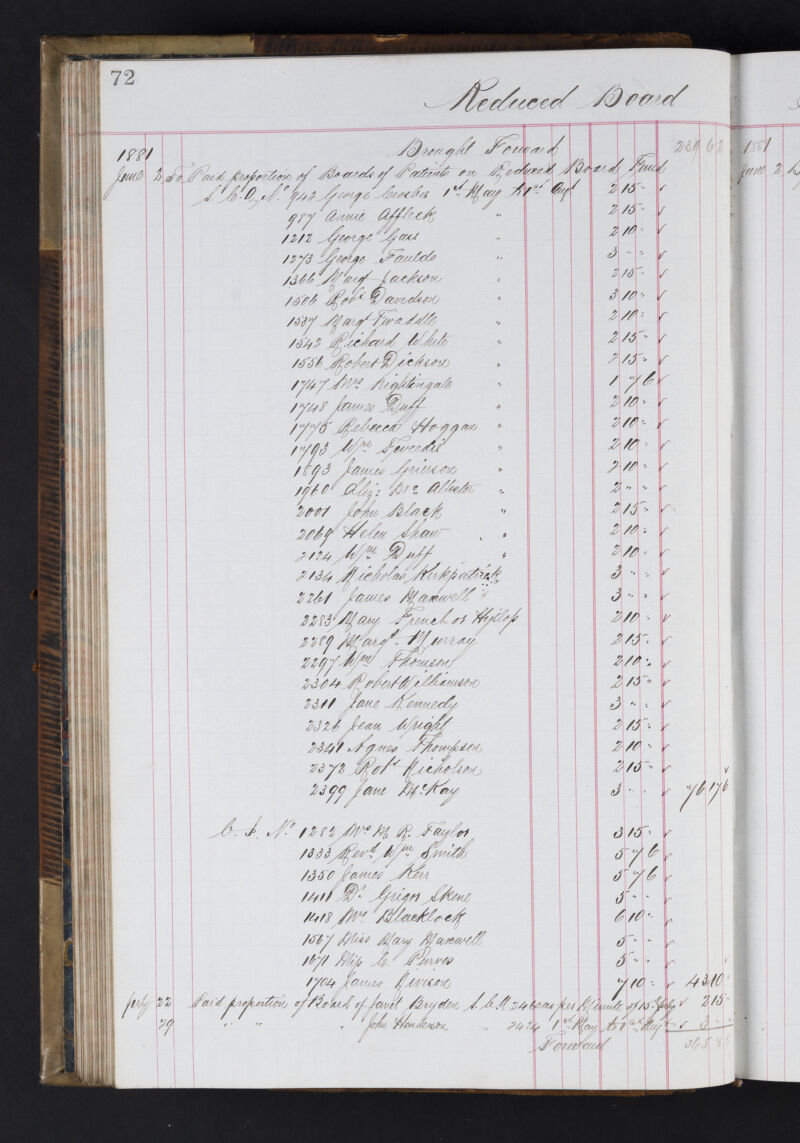 72
Reduced Board
1881 Brought Forward 239 62
June 2 To Paid proportion of Boards of Patients on Reduced Board Fund
S. C. A. No 942 George Crosbie 1st May to 1st Augt 2 15 "
957 Annie Affleck " 2 15 "
1212 George Gass " 2 10 "
1273 George Faulds " 3 " "
1366 Margt Jackson " 2 15 "
1506 Robt Davidson " 3 10 "
1537 Margt Twaddle " 2 10 "
1542 Richard White " 2 15 "
1556 Robert Dickson " 2 15 "
1747 Mrs Nightingale " 1 7 6
1748 James Duff " 2 10 "
1775 Rebecca Hoggan " 2 10 "
1793 Wm Tweedie " 2 10 "
1893 James Grierson " 2 10 "
1960 Eliz: McAllister " 2 " "
2001 John Black " 2 15 "
2069 Helen Shaw " " 2 10 "
2124 Wm Duff " 2 10 "
2134 Nicholas Kirkpatrick 3 " "
2261 James Maxwell " 3 " "
2283 Mary French or Hyslop 2 10 "
2289 Margt Murray 2 15 "
2297 Wm Thomson 2 10 "
2304 Robert Williamson 2 15 "
2311 Jane Kennedy 3 " "
2326 Jean Wright 2 15 "
2341 Agnes Thompson 2 10 "
2372 Robt Nicholson 2 15 "
2399 Jane McKay 3 " " 76 17 6
C. I. No 1282 Mrs M. R. Taylor 3 15 "
1333 Revd Wm Smith 5 7 6
1350 James Kerr 5 7 6
1411 Dr Grigor Skene 5 " "
1418 Mrs Blacklock 6 10 "
1567 Miss Mary Maxwell 5 " "
1671 Miss C. Purves 5 " "
1704 James Nivison 7 10 " 43 10
July 22 Paid proportion of Board of Janet Bryden S. C. A. 2460 as per Minute of 15 July 2 15
29 " " " John Henderson " 2424 1st May to 1st Augt 3 " "
Forward 365 8 8
1881
June 2